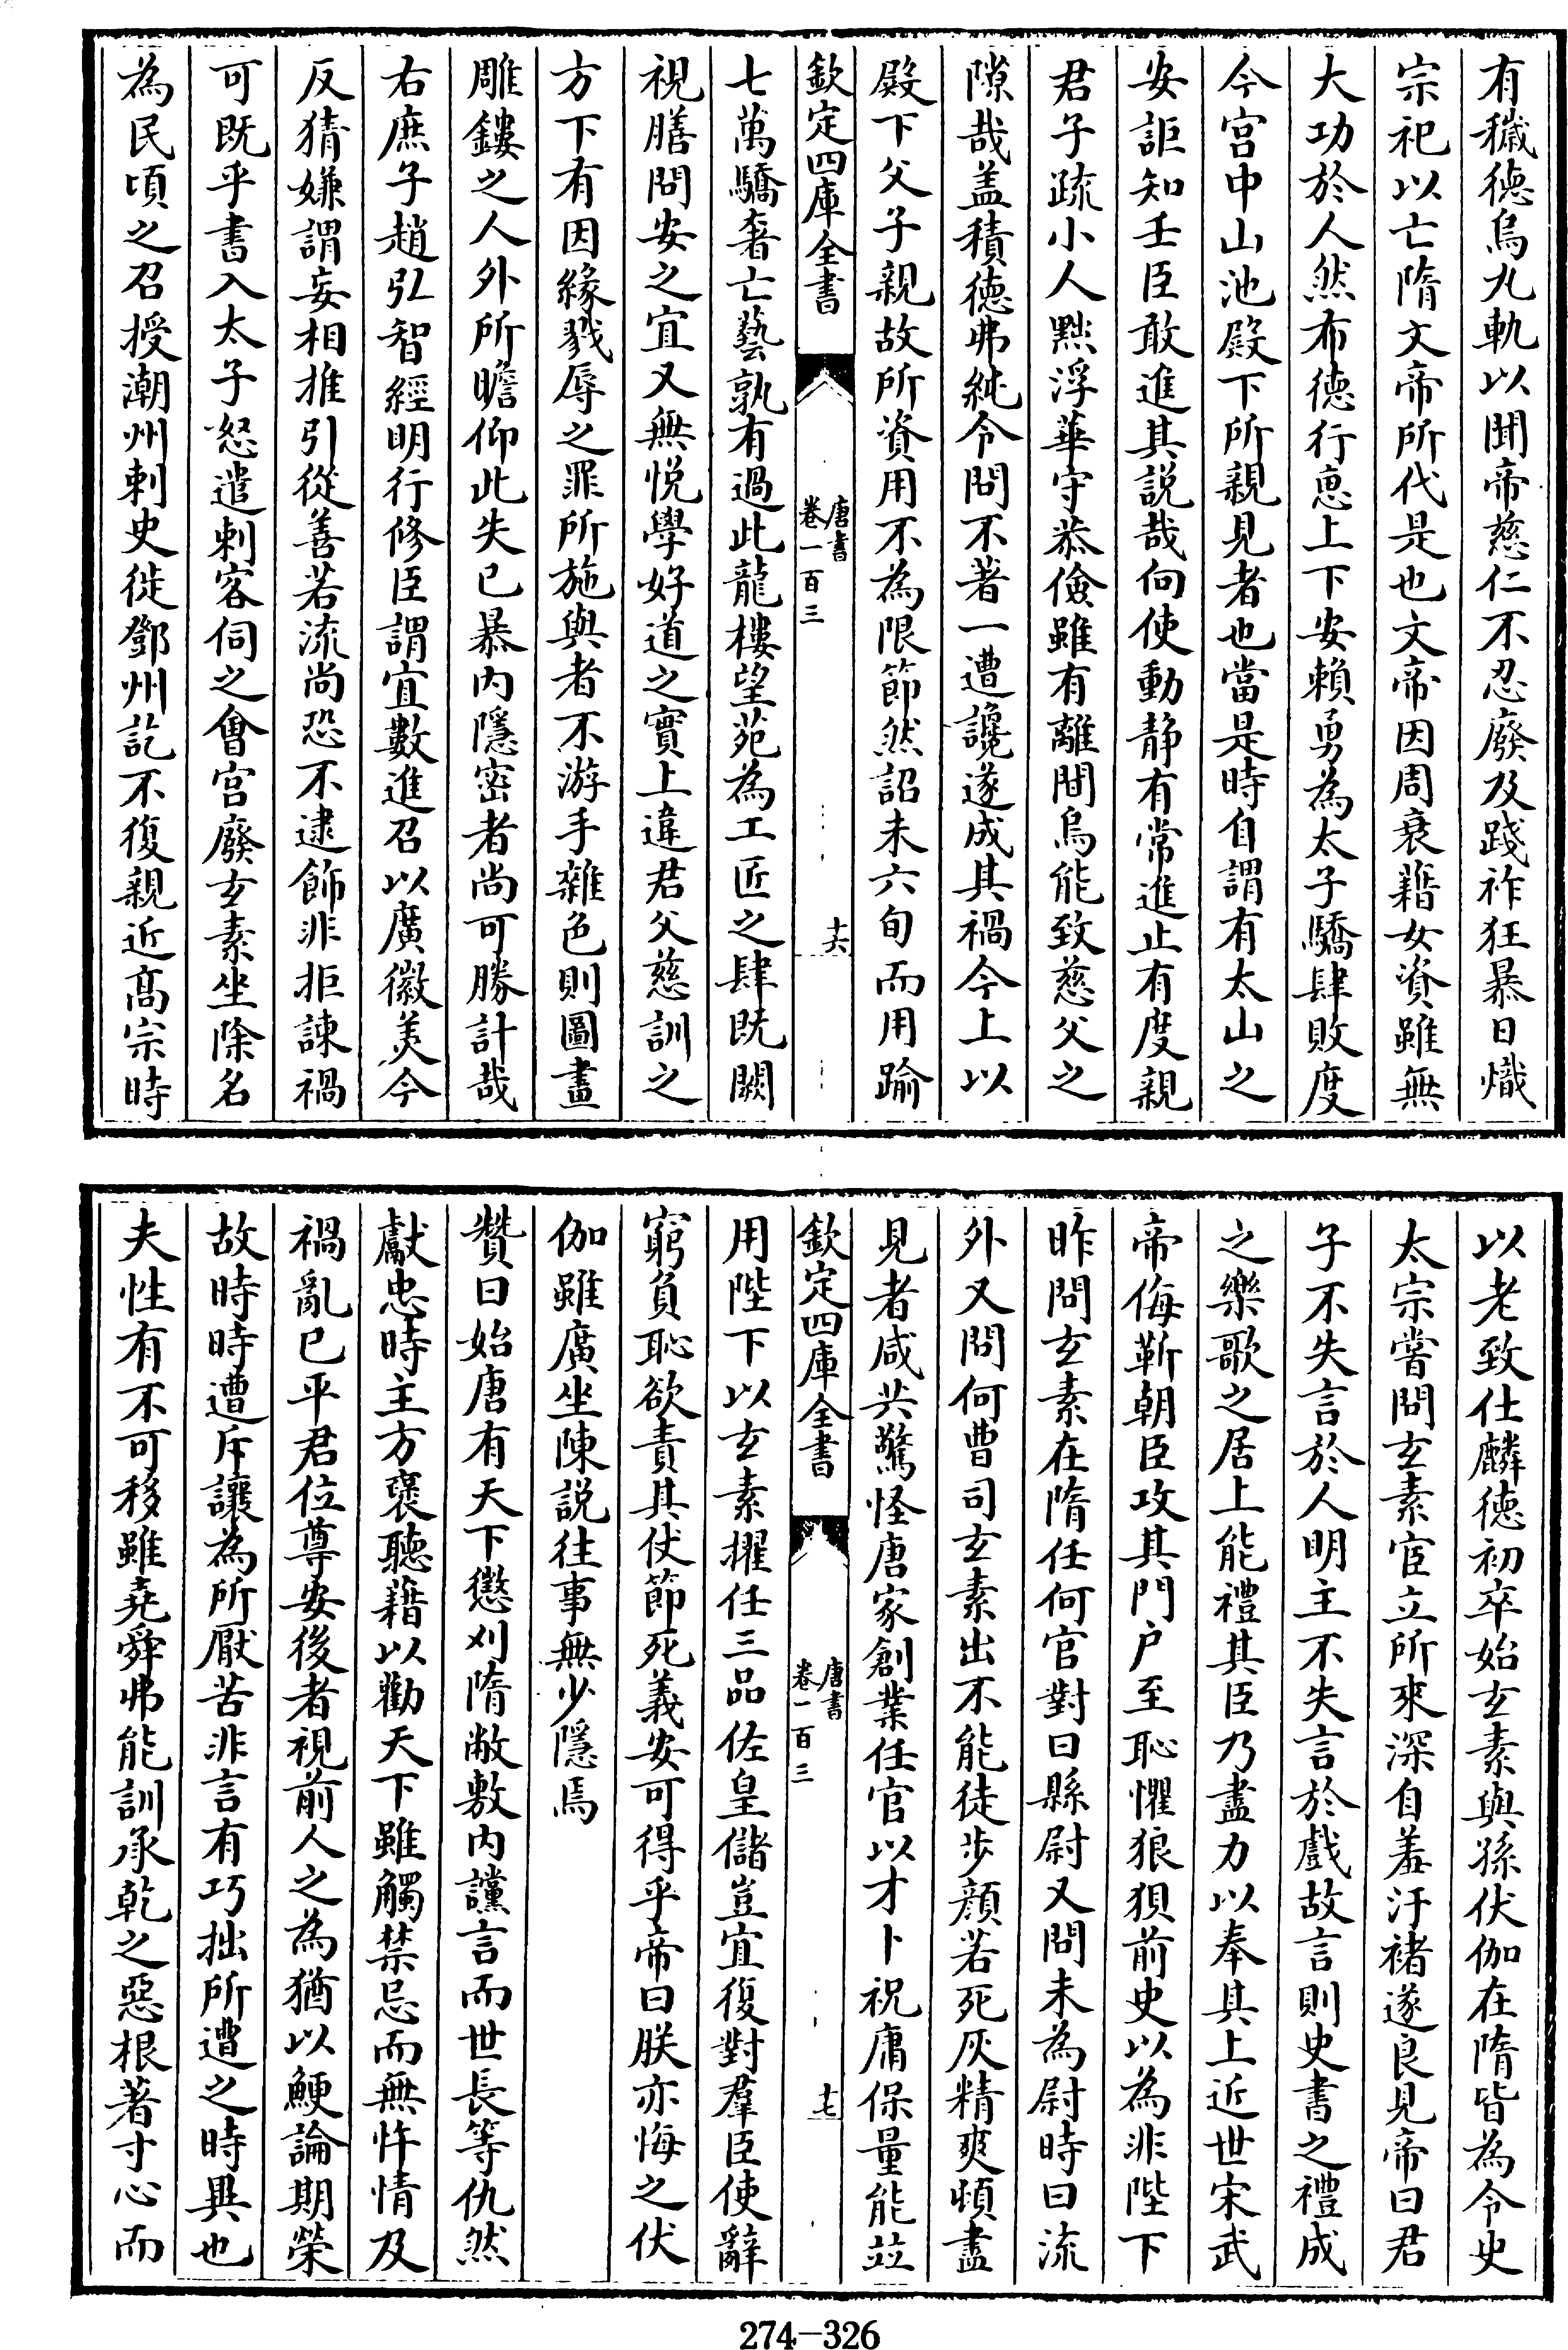 有穢德烏丸軌以聞帝慈仁不忍廢及踐祚狂暴日熾
宗祀以亡隋文帝所代是也文帝因周衰藉女資雖無
大功於人然布德行恵上下安賴勇為太子驕肆敗度
今宫中山池殿下所親見者也當是時自謂有太山之
安詎知壬臣敢進其説哉向使動静有常進止有度親
君子疏小人黜浮華守恭儉雖有離間烏能致慈父之
隙哉盖積德弗純令問不著一遭讒遂成其禍今上以
殿下父子親故所資用不為限節然詔未六旬而用踰
欽定四庫全書
唐書
卷一百三
十六
七萬驕奢亡藝孰有過此龍樓望苑為工匠之肆既闕
視膳問安之宜又無悦學好道之實上違君父慈訓之
方下有因緣戮辱之罪所施與者不游手雜色則圖畫
雕鏤之人外所瞻仰此失已暴内隱密者尚可勝計哉
右庶子趙弘智經明行修臣謂宜數進召以廣徽美今
反猜嫌謂妄相推引從善若流尚恐不逮飾非拒諫禍
可既乎書入太子怒遣刺客伺之會宫廢玄素坐除名
為民頃之召授潮州刺史徙鄧州訖不復親近髙宗時
以老致仕麟德初卒始玄素與孫伏伽在隋皆為令史
太宗嘗問玄素宦立所來深自羞汗褚遂良見帝曰君
子不失言於人明主不失言於戲故言則史書之禮成
之樂歌之居上能禮其臣乃盡力以奉其上近世宋武
帝侮靳朝臣攻其門户至恥懼狼狽前史以為非陛下
昨問玄素在隋任何官對曰縣尉又問未為尉時曰流
外又問何曹司玄素出不能徒步顔若死灰精爽頓盡
見者咸共驚怪唐家創業任官以才卜祝庸保量能竝
欽定四庫全書
唐書
卷一百三
十七
用陛下以玄素擢任三品佐皇儲豈宜復對羣臣使辭
窮負恥欲責其伏節死義安可得乎帝曰朕亦悔之伏
伽雖廣坐陳説往事無少隱焉
贊曰始唐有天下懲刈隋敝敷内讜言而世長等仇然
獻忠時主方褒聽藉以勸天下雖觸禁忌而無忤情及
禍亂已平君位尊安後者視前人之為猶以鯁論期榮
故時時遭斥讓為所厭苦非言有巧拙所遭之時異也
夫性有不可移雖堯舜弗能訓承乾之惡根著寸心而
274-326